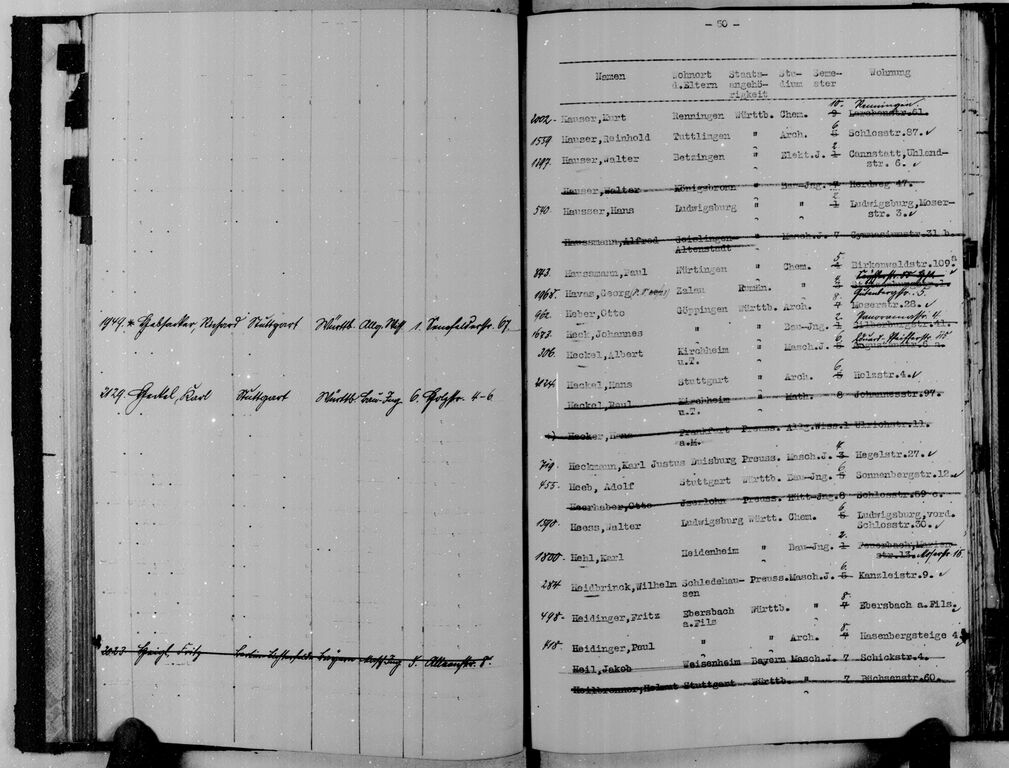 1949. Richard Stuttgart Württb. Allg. 1. 67.
2129. Heckel, Karl Stuttgart Württb. Bau-Ing 6. Holzstr. 4-6
2023 Fritz 5. 8.
- 50 -
Namen Wohnort Staats- Stu- Seme- Wohnung
d.Eltern angehö- dium ster
rigkeit
10. Renningen
2002- Hauser, Kurt Renningen Württb. Chem. 9 Lerchenstr.61.
6
1559 Hauser, Reinhold Tuttlingen " Arch. 5 Schlosstr.87. ✓
2
1197. Hauser, Walter Betzingen " Elekt.J. 1 Cannstatt, Uhland-
str. 6. ✓
Hauser, Walter Königsbronn " Bau-Jng. 4 Herdweg 47.
2
540- Hausser, Hans Ludwigsburg " " 1 Ludwigsburg, Moser-
str. 3. ✓
Haussmann, Alfred Geislingen- " Masch.J. 7 Gymnasiumstr.31 b.
Altenstadt
5.
843. Haussmann, Paul Nürtingen " Chem. 4 Birkenwaldstr.109a ✓
1065. Havas, Georg Zalau Rumän. " Gutenbergstr. 5.
8.
962. Heber, Otto Göppingen Württb. Arch. 4 Moserstr.28. ✓
2. Panoramastr. 4.
1673. Heck, Johannes " " Bau-Jng. 1 Silberburgstr.41.
6.
206. Heckel, Albert Kirchheim " Masch.J.
u.T.
6.
2124. Heckel, Hans Stuttgart " Arch. 5 Holzstr.4. ✓
Heckel, Paul Kirchheim " Math. 8 Johannesstr.97.
u.T.
Hecker, Hans Frankfurt Preuss. Allg.Wiss.1 Ulrichstr.11.
a.M.
4.
719. Heckmann, Karl Justus Duisburg Preuss. Masch.J. 3 Hegelstr.27. ✓
6
455. Heeb, Adolf Stuttgart Württb. Bau-Jng. 5 Sonnenbergstr.12. ✓
Heerhaber, Otto Jserlohn Preuss. Hütt-Jng. 8 Schlosstr.59 c.
6.
1590. Heess, Walter Ludwigsburg Württ. Chem. 5 Ludwigsburg, vord.
Schlosstr.30. ✓
2.
1800- Hehl, Karl Heidenheim " Bau-Jng. 1 Feuerbach, Marien-
str.13. Moserstr. 16.
6.
284 Heidbrinck, Wilhelm Schledehau- Preuss. Masch.J. 5 Kanzleistr.9. ✓
sen
8.
498- Heidinger, Fritz Ebersbach Württb. " 7 Ebersbach a.Fils.
a.Fils
8.
418. Heidinger, Paul " " Arch. 4 Hasenbergsteige 4.
Heil, Jakob Weisenheim Bayern Masch.J. 7 Schickstr.4.
Heilbronner, Helmut Stuttgart Württb. " 7 Büchsenstr.60.